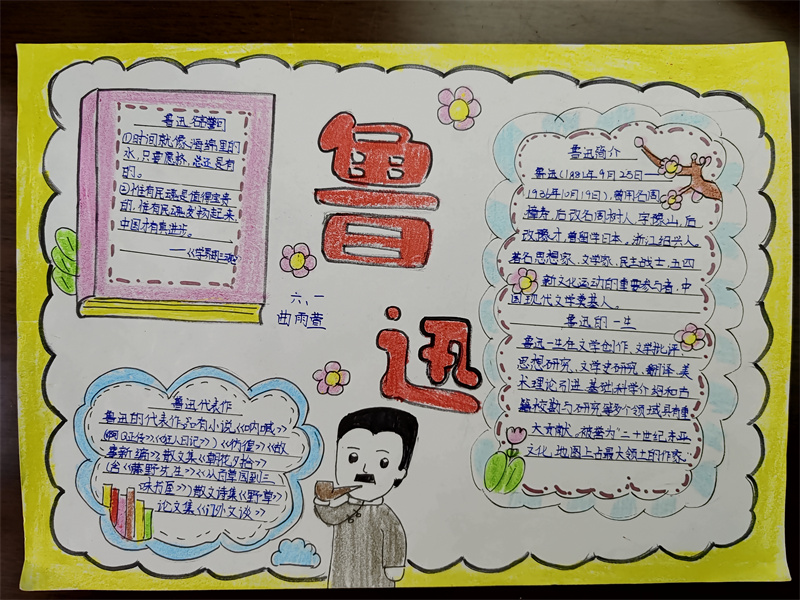 鲁迅
六、一
曲雨萱
鲁迅名言警句
①时间就像海绵里的
水,只要愿挤,总还是有
的。
②惟有民魂是值得宝贵
的,惟有民魂发扬起来
中国才有真进步。
鲁迅代表作
鲁迅的代表作品有小说《呐喊》
《阿Q正传》《狂人日记》《彷徨》《故
事新编》散文集《朝花夕拾》
(含《藤野先生》《从百草园到三
味书屋》)散文诗集《野草》
论文集《门外文谈》
鲁迅简介
鲁迅(1881年9月25日——
1936年10月19日),曾用名周
樟寿,后改名周树人,字豫山,后
改豫才,曾留学日本,浙江绍兴人。
著名思想家、文学家、民主战士,五四
新文化运动的重要参与者,中
国现代文学奠基人。
鲁迅的一生
鲁迅一生在文学创作、文学批评、
思想研究、文学史研究、翻译、美
术理论引进、基础科学介绍和古
籍校勘与研究等多个领域具有重
大贡献,被誉为"二十世纪东亚
文化地图上占最大领土的作家